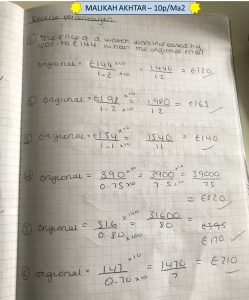 MALIKAH AKHTAR – 10p/Ma2
Reverse percentages
① The price of a watch was increased by
20% to £144. What was the original price?
original = £144 ×10 / 1.2 ×10 = 1440 / 12 = £120
② original = £198 ×10 / 1.2 ×10 = 1980 / 12 = £165
③ original = £154 ×10 / 1.1 ×10 = 1540 / 11 = £140
④ original = 390 ×10 / 0.75 ×10 = 3900 ×10 / 7.5 ×10 = 39000 / 75
= £520
⑤ original = 316 ×100 / 0.80 ×100 = 31600 / 80 =
£170
⑥ original = 147 ×10 / 0.70 ×10 = 1470 / 7 = £210